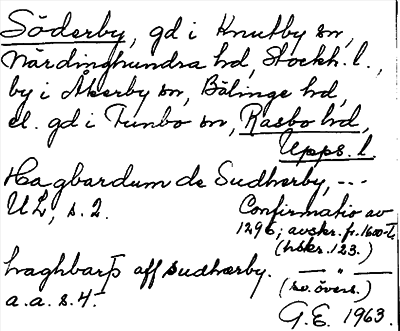 Söderby, gd i Knutby sn,
Närdinghundra hd, Stockh. l.,
by i Åkerby sn, Bälinge hd,
el. gd i Funbo sn, Rasbo hd,
Upps. l.
Hagbardum de Sudhærby, ---
UL, s. 2.
Confirmatio av
1296; avskr. fr. 1600-t.
(hskr. 123.)
haghbarþ aff sudhærby. — " —
a.a. s. 4.
(sv. övers.)
G.E. 1963.